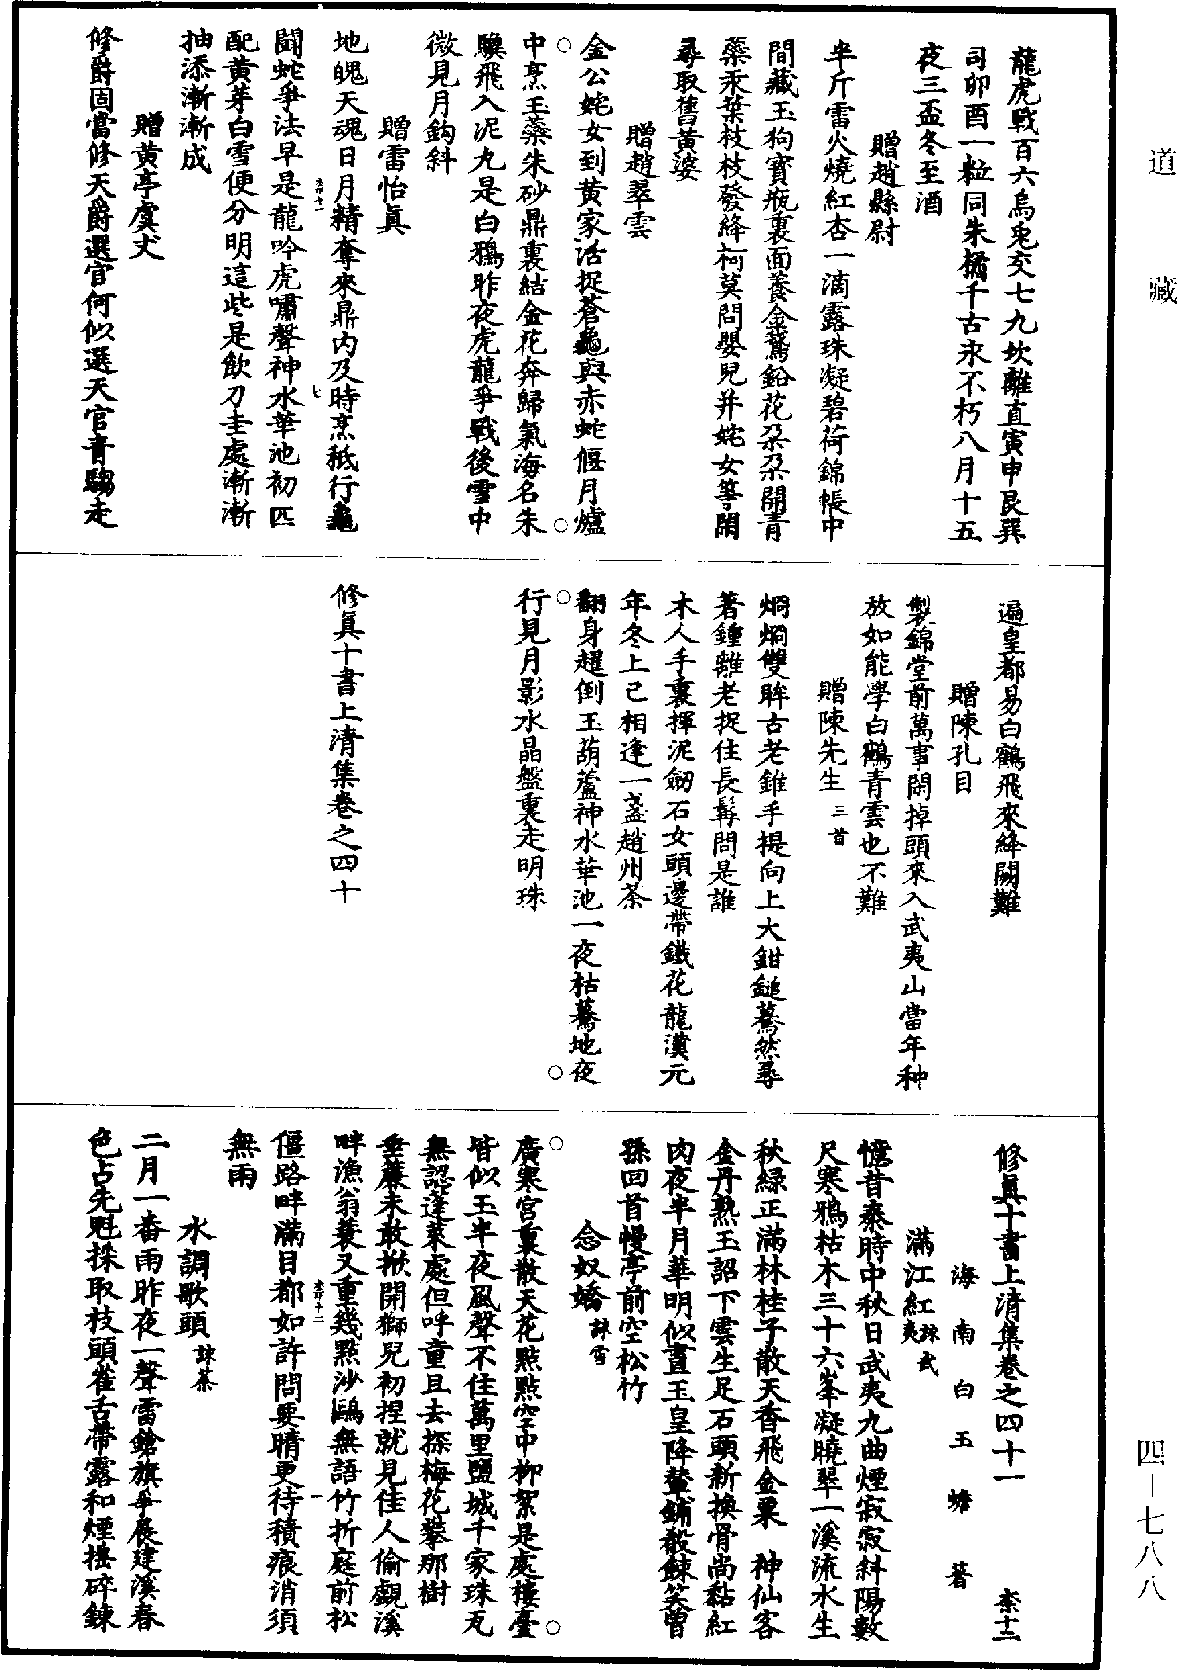 道藏
龍虎戰百六烏兎交七九坎離直寅申艮巽
司卯酉一粒同朱橘千古永不朽八月十五
夜三盃冬至酒
贈趙縣尉
半斤雷火燒紅杏一滴露珠凝碧荷錦帳中
間藏玉狗寶瓶裏面養金鵞鉛花朶朶開青
蘂汞葉枝枝發絳柯莫問嬰兒并姹女等閑
尋取舊黃婆
贈趙翠雲
金公姹女到黃家活捉蒼龜與赤蛇偃月爐
中烹玉蘂朱砂鼎裏結金花奔歸氣海名朱
驥飛入泥丸是白鴉昨夜虎龍爭戰後雪中
微見月鈎斜
贈雷怡真
地魄天魂日月精奪來鼎内及時烹秪行龜
鬪蛇爭法早是龍吟虎嘯聲神水華池初匹
配黃芽白雪便分明這些是飲刀圭處漸漸
抽添漸漸成
贈黃亭虞犬
修爵固當修天爵選官何似選天官青騶走
遍皇都易白鶴飛來絳闕難
贈陳孔目
製錦堂前萬事閑掉頭來入武夷山當年种
放如能學白鶴青雲也不難
贈陳先生三首
烱烱雙眸古老錐手提向上大鉗鎚驀然尋
著鍾離老捉住長髯問是誰
木人手裏揮泥劒石女頭邊帶鐵花龍漢元
年冬上已相逢一盞趙州茶
翻身趯倒玉葫蘆神水華池一夜枯驀地夜
行見月影水晶盤裏走明珠
修真十書上清集卷之四十
修真十書上清集卷之四十一 柰十二
海南白玉蟾著
滿江紅詠武夷
憶昔秦時中秋日武夷九曲煙寂寂斜陽數
尺寒鴉枯木三十六峯凝曉翠一溪流水生
秋綠正滿林桂子散天香飛金粟 神仙客
金丹熟玉詔下雲生足石頭新換骨尚黏紅
肉夜半月華明似晝玉皇降輦鋪殽餗笑曾
孫回首幔亭前空松竹
念奴嬌詠雪
廣寒宮裏散天花點點空中柳絮是處樓臺
皆似玉半夜風聲不住萬里鹽城千家珠瓦
無認蓬萊處但呼童且去探梅花攀那樹
垂簾未敢掀開獅兒初捏就見佳人偷覷溪
畔漁翁蓑又重幾點沙鷗無語竹折庭前松
僵路畔滿目都如許問要晴更待積痕消須
無雨
水調歌頭詠茶
二月一番雨昨夜一聲雷鎗旗爭展建溪春
色占先魁採取枝頭雀舌帶露和煙搗碎鍊
四—七八八